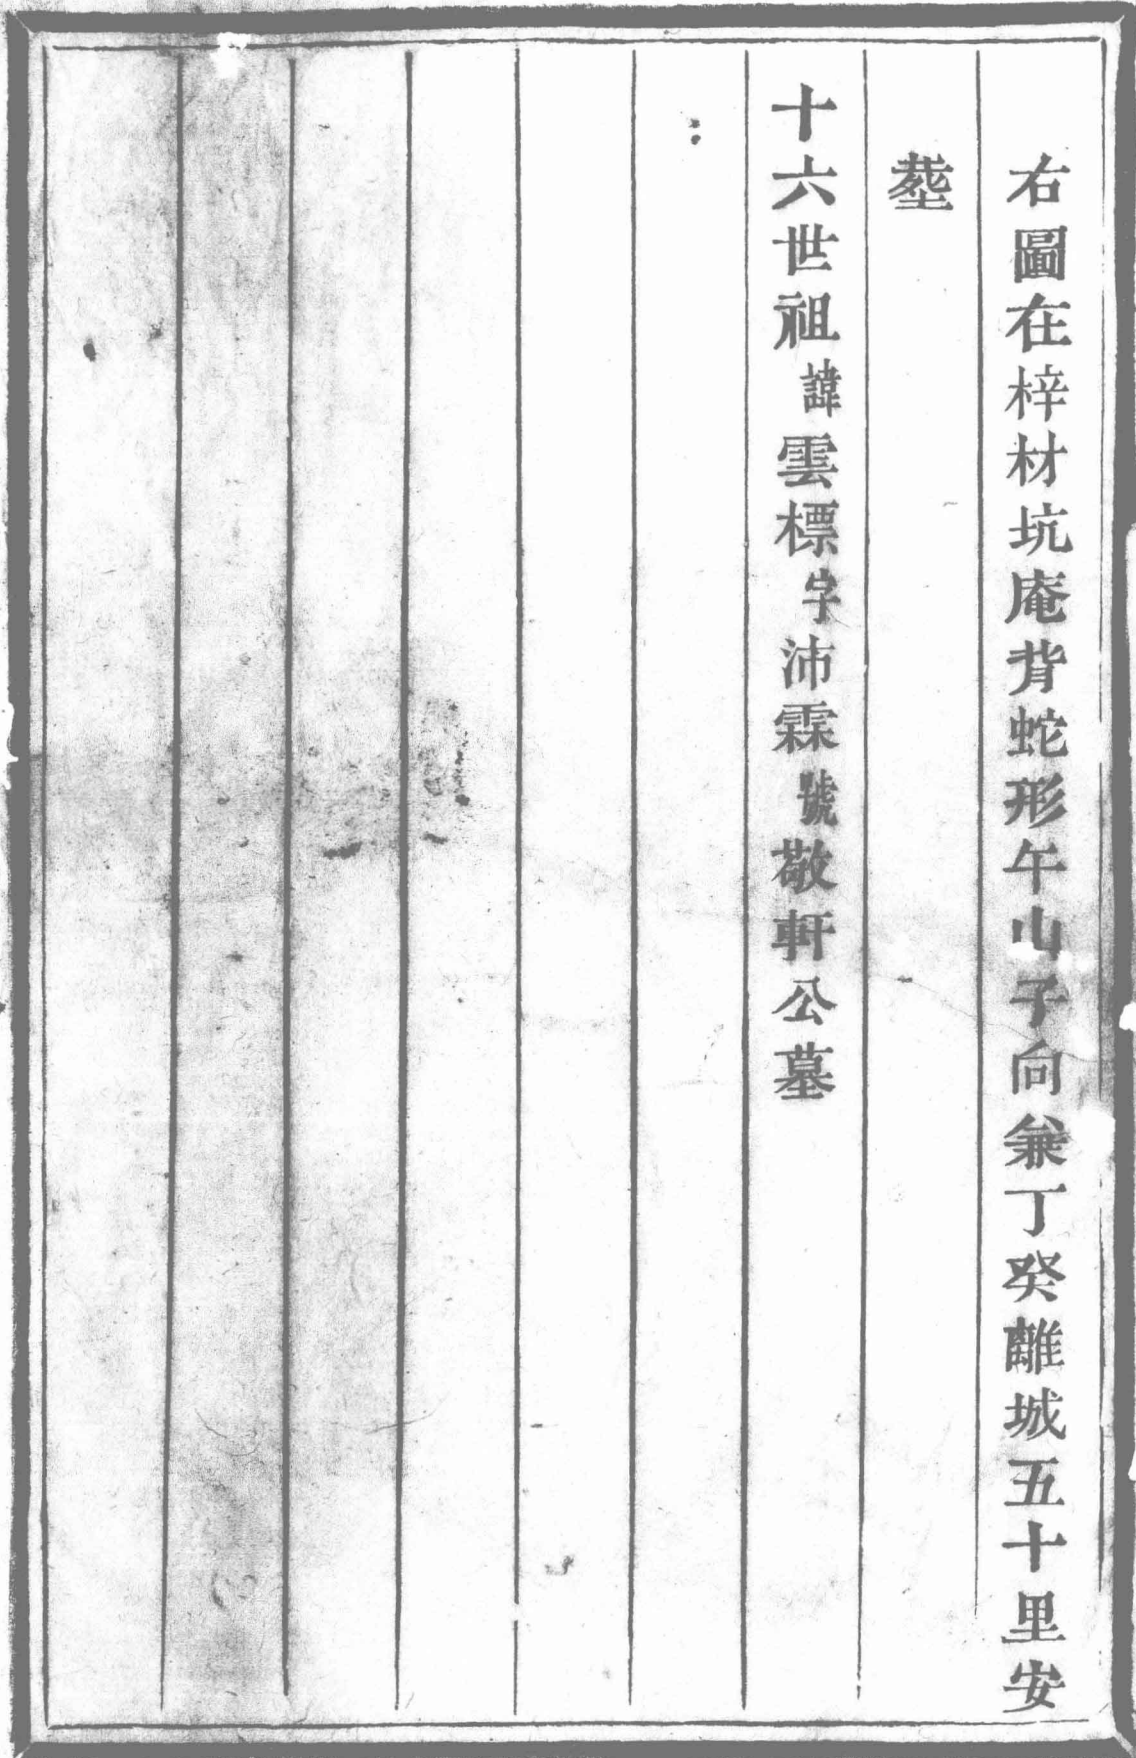 右圖在梓材坑庵背蛇形午山子向兼丁癸離城五十里安
塟
十六世祖諱雲標字沛霖號敬軒公墓